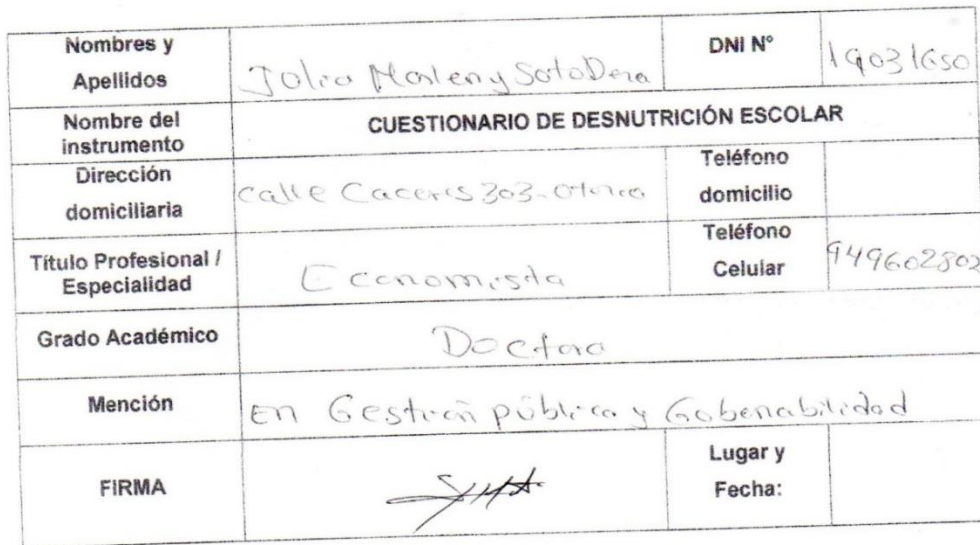 Nombres y
Apellidos
Julia Marleny Soto Deza
DNI N°
19031650
Nombre del
instrumento
CUESTIONARIO DE DESNUTRICIÓN ESCOLAR
Dirección
domiciliaria
calle Caceres 303-
Teléfono
domicilio
Título Profesional /
Especialidad
Economista
Teléfono
Celular
949602802
Grado Académico
Doctora
Mención
En Gestión pública y Gobenabilidad
FIRMA
Lugar y
Fecha: